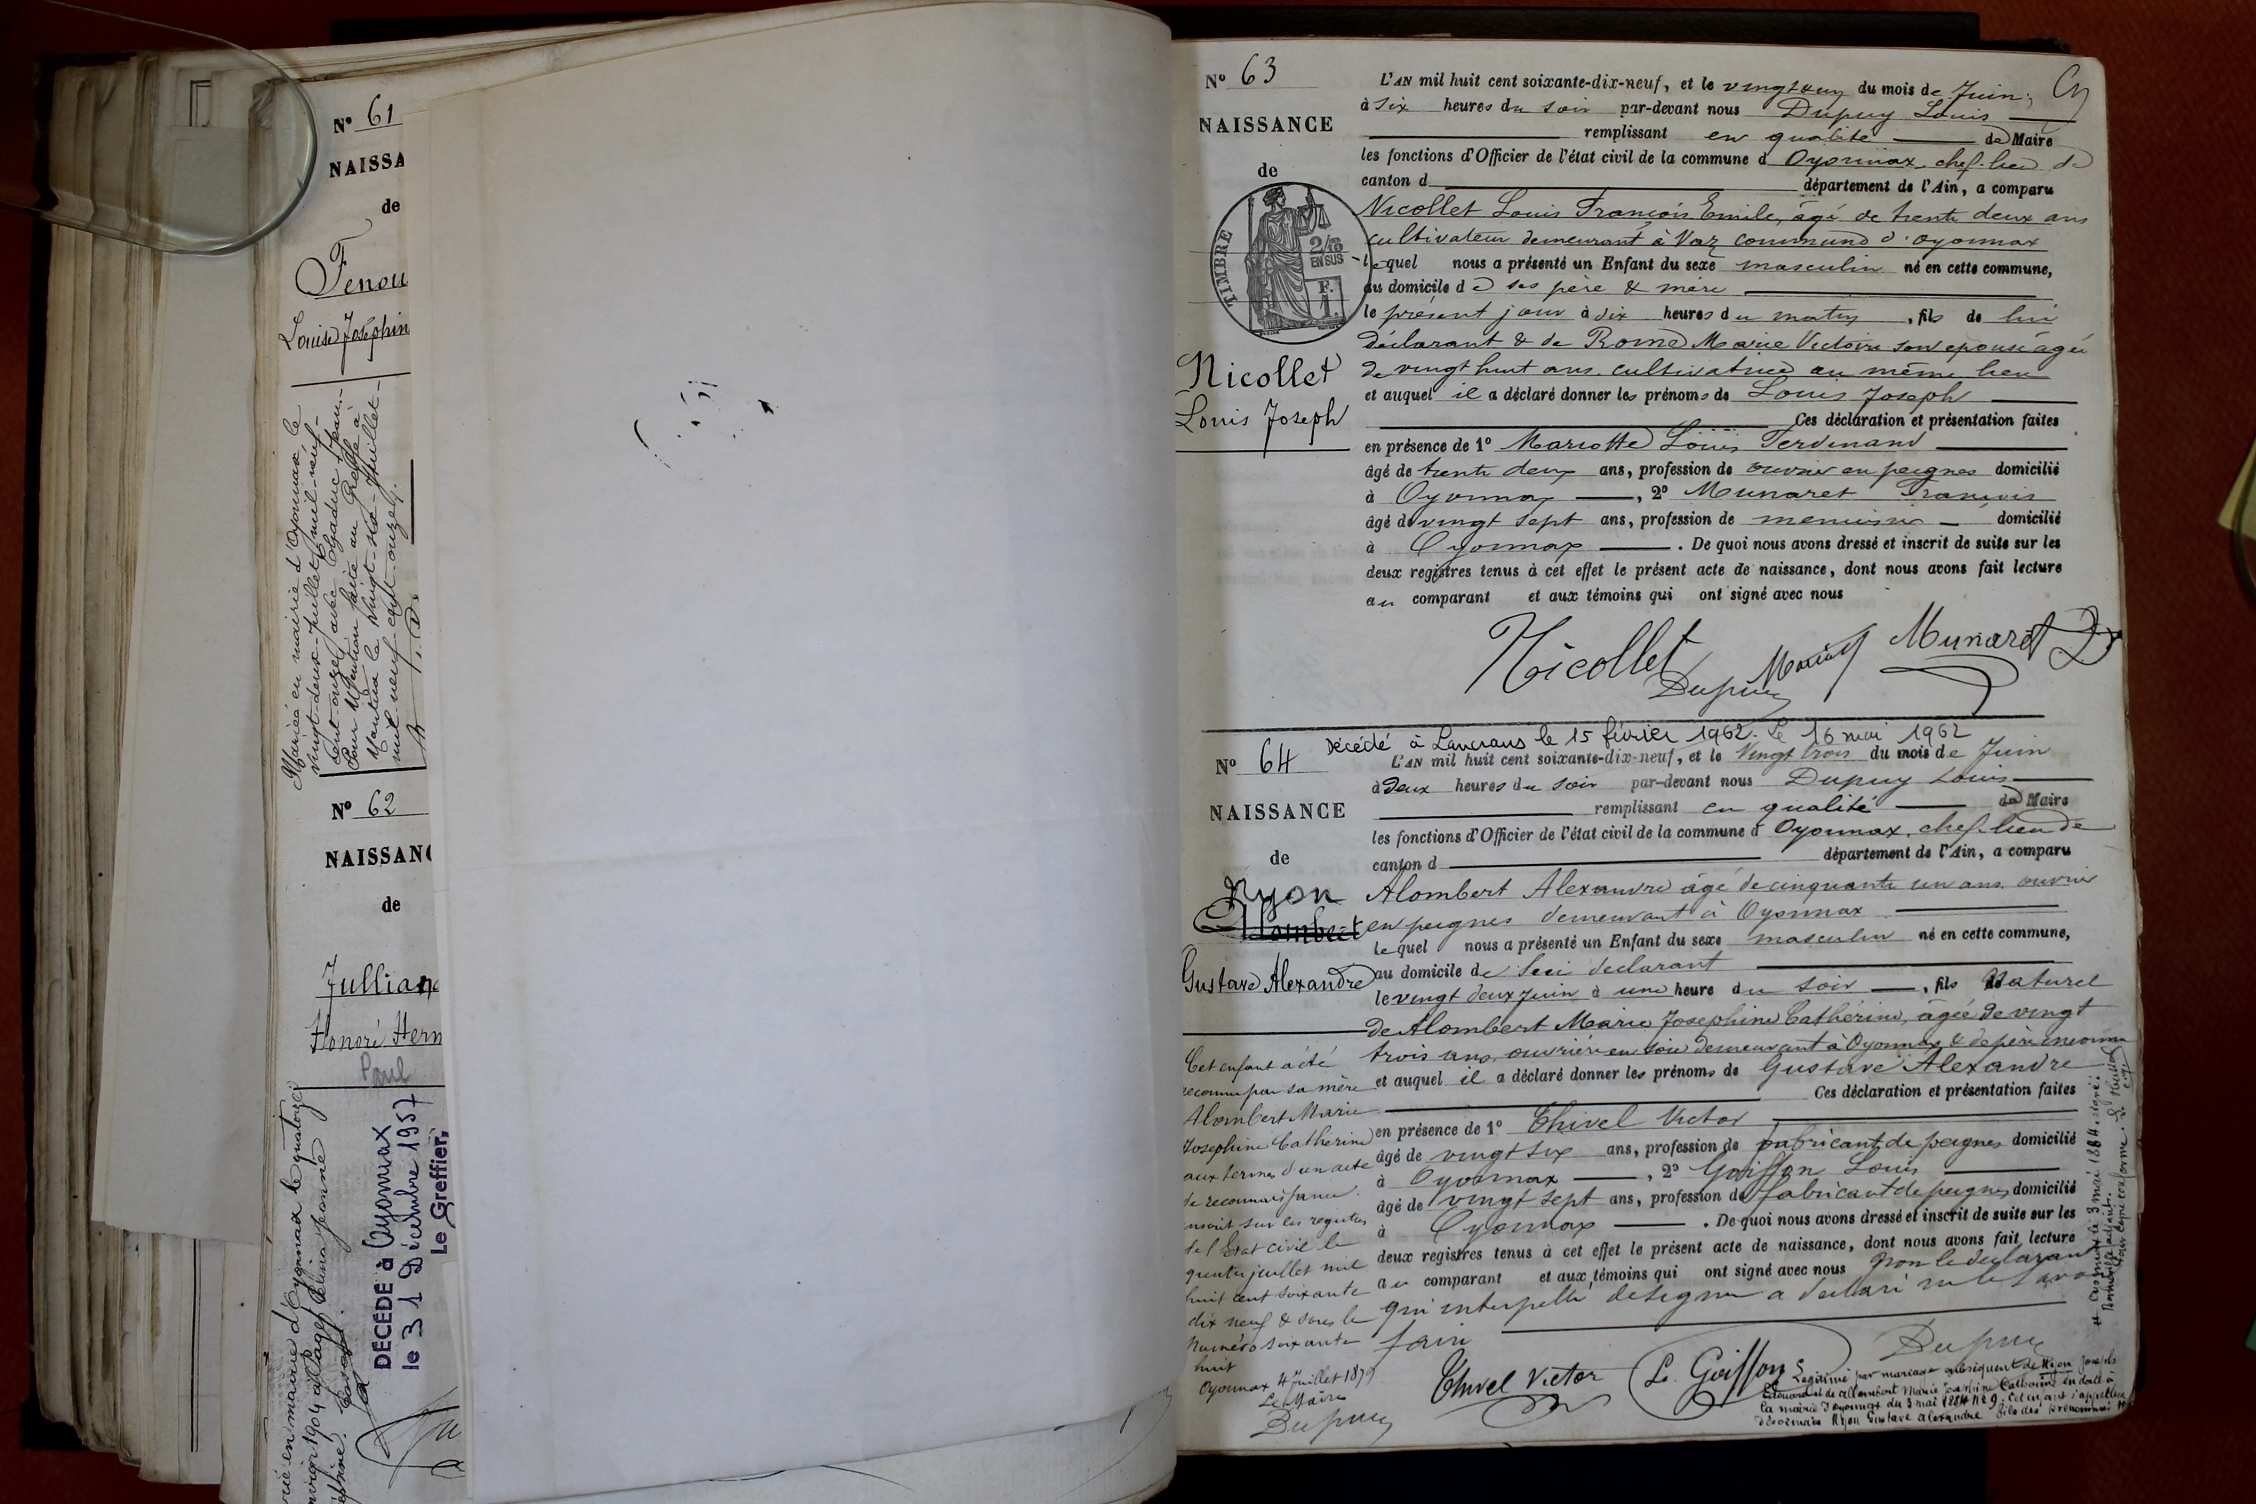 N° 61
NAISSA
de
Fenou
Louise Joséphin
Mariée en mairie d'Oyonnax, le
vingt-deux juillet mil neuf-
cent onze, avec
Pour Mention faite au Greffe à
Nantua le vingt-six-Juillet-
mil neuf cent onze
N° 62
NAISSAN
de
Jullian
Honoré Hern
Paul
en mairie d'Oyonnax le quatorze
1904
DÉCÉDÉ à Oyonnax
le 31 Décembre 1957
Le Greffier,
N° 63
NAISSANCE
de
TIMBRE
2/10
EN SUS
F.
1.
Nicollet
Louis Joseph
L'AN mil huit cent soixante-dix-neuf, et le vingt & un du mois de Juin,
à six heures du soir par-devant nous Dupuy Louis
remplissant en qualité de Maire
les fonctions d'Officier de l'état civil de la commune d Oyonnax, chef-lieu de
canton d département de l'Ain, a comparu
Nicollet Louis François Emile, âgé de trente deux ans
cultivateur demeurant à commune d'Oyonnax
lequel nous a présenté un Enfant du sexe masculin né en cette commune,
au domicile de ses père & mère
le présent jour à dix heures du matin, fils de lui
déclarant & de Marie Victoire son épouse âgée
de vingt huit ans. cultivatrice au même lieu
et auquel il a déclaré donner les prénoms de Louis Joseph
Ces déclaration et présentation faites
en présence de 1° Mariotte Louis Ferdinand
âgé de trente deux ans, profession de ouvrier en peignes domicilié
à Oyonnax, 2° Munaret François
âgé de vingt sept ans, profession de menuisier domicilié
à Oyonnax. De quoi nous avons dressé et inscrit de suite sur les
deux registres tenus à cet effet le présent acte de naissance, dont nous avons fait lecture
au comparant et aux témoins qui ont signé avec nous
Nicollet Munaret
Dupuy
décédé à Lancrans le 15 février 1962. Le 16 mai 1962
N° 64
NAISSANCE
de
Ryon
Alombert
Gustave Alexandre
L'AN mil huit cent soixante-dix-neuf, et le Vingt trois du mois de Juin
à deux heures du soir par-devant nous Dupuy Louis
remplissant en qualité de Maire
les fonctions d'Officier de l'état civil de la commune d Oyonnax, chef-lieu de
canton d département de l'Ain, a comparu
Alombert Alexandre âgé de cinquante un ans, ouvrier
en peignes demeurant à Oyonnax
lequel nous a présenté un Enfant du sexe masculin né en cette commune,
au domicile de lui déclarant
le vingt deux Juin à une heure du soir, fils Naturel
de Alombert Marie Josephine Cathérine, âgée de vingt
trois ans, ouvrière en soie demeurant à Oyonnax & de père inconnu
et auquel il a déclaré donner les prénoms de Gustave Alexandre
Ces déclaration et présentation faites
en présence de 1° Thivel Victor
âgé de vingt six ans, profession de fabricant de peignes domicilié
à Oyonnax, 2° Goiffon Louis
âgé de vingt sept ans, profession de fabricant de peignes domicilié
à Oyonnax. De quoi nous avons dressé et inscrit de suite sur les
deux registres tenus à cet effet le présent acte de naissance, dont nous avons fait lecture
au comparant et aux témoins qui ont signé avec nous non le déclarant
qui interpellé de signer a déclaré ne le savoir
faire
Cet enfant a été
reconnu par sa mère
Alombert Marie
Josephine Cathérine
aux termes d'un acte
de reconnaissance
inscrit sur les registres
de l'Etat civil le
quatre juillet mil
huit cent soixante
dix neuf & sous le
Numéro soixante
huit
Oyonnax, 4 Juillet 1879
Le Maire
Dupuy
Thivel Victor L. Goiffon Dupuy
Legitimé par mariage subséquent de Ryon Joseph
Edouard et de allombert Marie Josephine Catherine en date à
la mairie d'oyonnax du 3 mai 1884 N° 9. Cet enfant s'appellera
désormais Ryon Gustave alexandre fils des prénommés
Oyonnax le 3 mai 1884. signé: